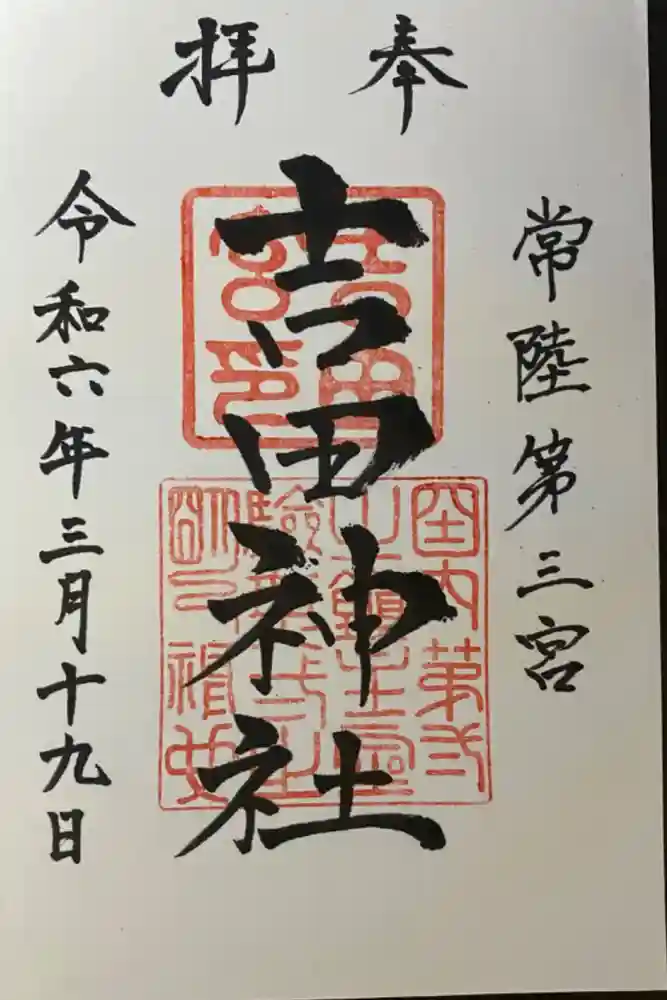 奉拝
常陸第三宮
吉田神社
令和六年三月十九日
吉田宮印